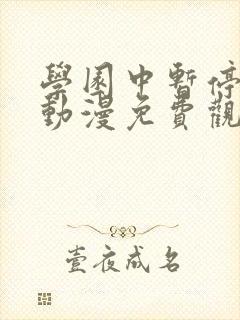 學園中暫停
動漫免費觀
壹夜成名